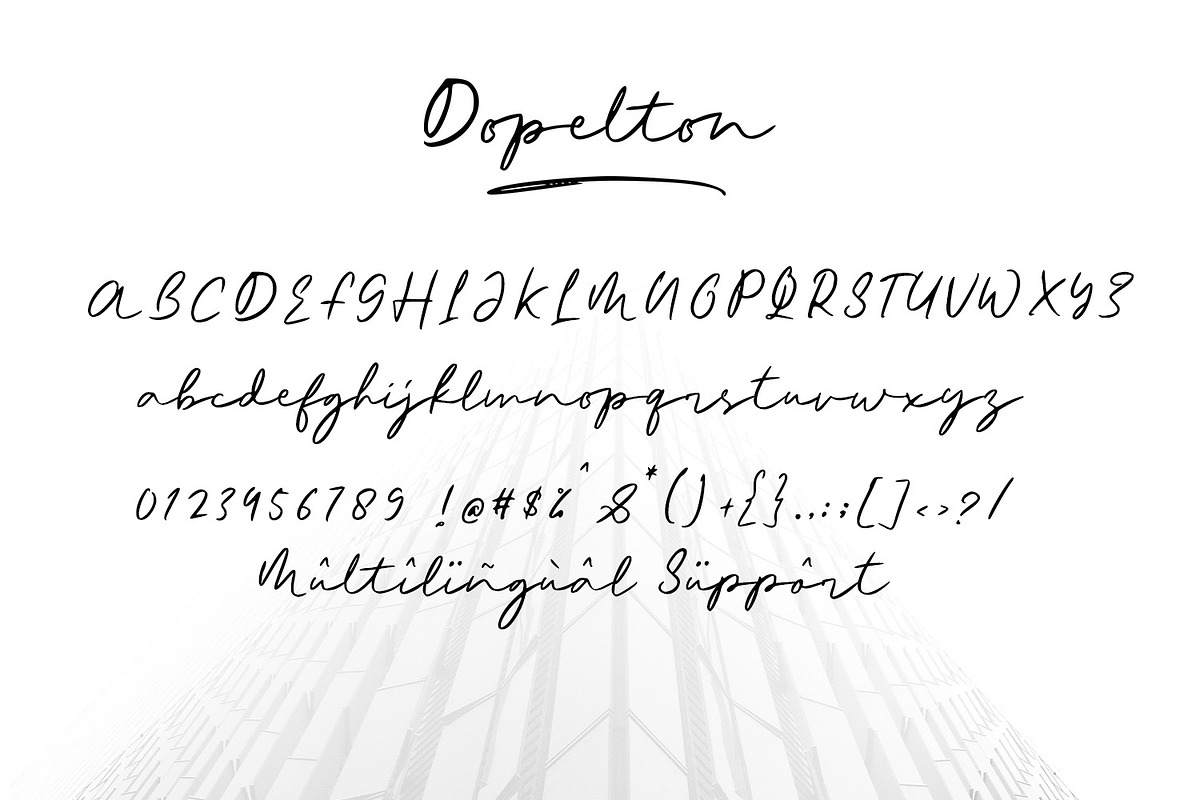 Dopelton
ABCDEFGHIJKLMNOPQRSTUVWXYZ
abcdefghijklmnopqrstuvwxyz
0123456789 !@#$%^&*()+{}.,:;[]<>?/
Mûltîlïñgùâl Süppôrt